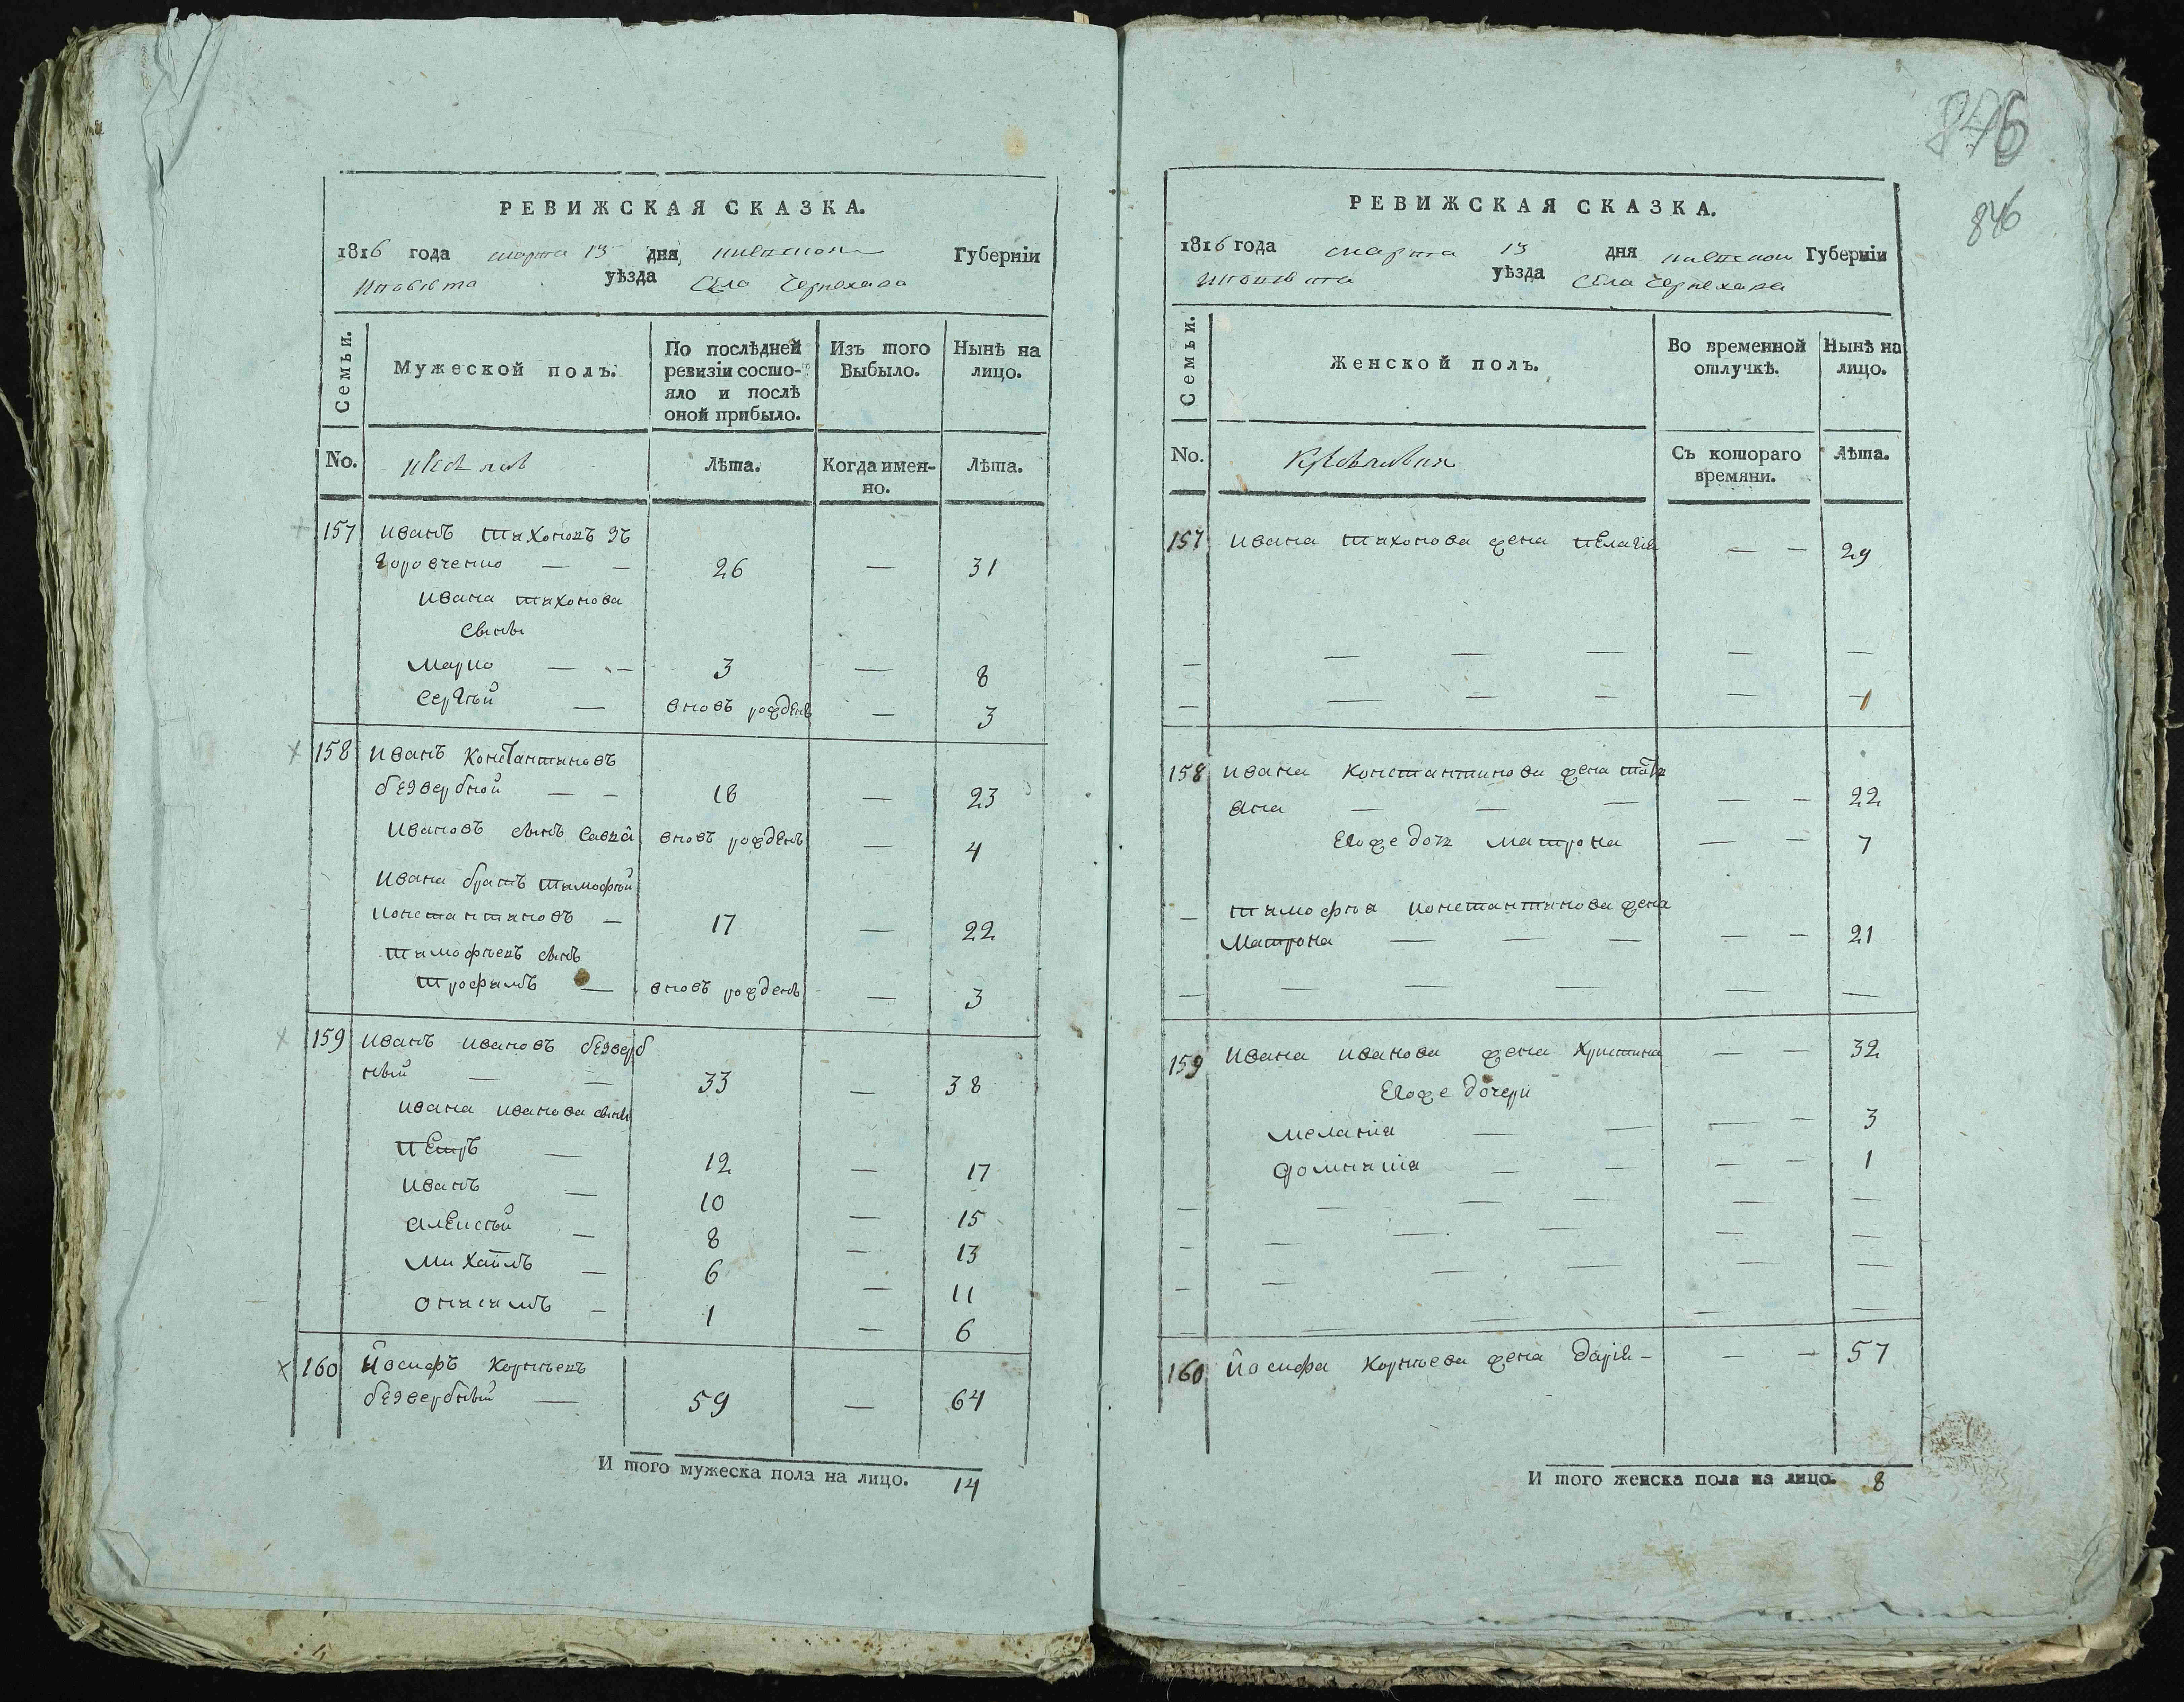 РЕВИЖСКАЯ СКАЗКА.
1816 года марта 13 дня Губерніи
уѣзда Села Чернехова
Семьи.
Мужеской полъ.
По послѣдней ревизіи состо-
яло и послѣ
оной прибыло.
Изъ того
Выбыло.
Нынѣ на
лицо.
No.
Лѣта.
Когда имен-
но.
Лѣта.
157 Иванъ Тихоновъ
26 — 31
Ивана Тихонова
сыны
Марко — — 3 — 8
Сергѣй — вновь рожденъ — 3
158 Иванъ Константиновъ
безвербной — — 18 — 23
Ивановъ сынъ Савка вновь рожденъ — 4
Ивана братъ Тимофѣй
Константиновъ — 17 — 22
Тимофѣевъ сынъ
Трофимъ — вновь рожденъ — 3
159 Иванъ Ивановъ безверб
ный — — 33 — 38
Ивана Иванова сыны
Петръ — 12 — 17
Иванъ — 10 — 15
Алексѣй — 8 — 13
Михаилъ — 6 — 11
Онисимъ — 1 — 6
160 Йосифъ Корнѣевъ
безвербный — 59 — 64
И того мужеска пола на лицо. 14
846
846
РЕВИЖСКАЯ СКАЗКА.
1816 года марта 13 дня Губерніи
уѣзда Села Чернехова
Семьи.
Женской полъ.
Во временной
отлучкѣ.
Нынѣ на
лицо.
No.
Съ котораго
времяни.
Лѣта.
157 Ивана Тихонова жена Пелагія — — 29
158 Ивана Константинова жена Тати
ана — — — — — 22
Егоже дочь Матрона — — 7
— Тимофѣя Константинова жена
Матрона — — — — — 21
159 Ивана Иванова жена Христина — — 32
Егоже дочери
Меланія — — — — 3
Домникія — — — — 1
160 Йосифа Корнѣева жена Дарія — — — 57
И того женска пола на лицо. 8